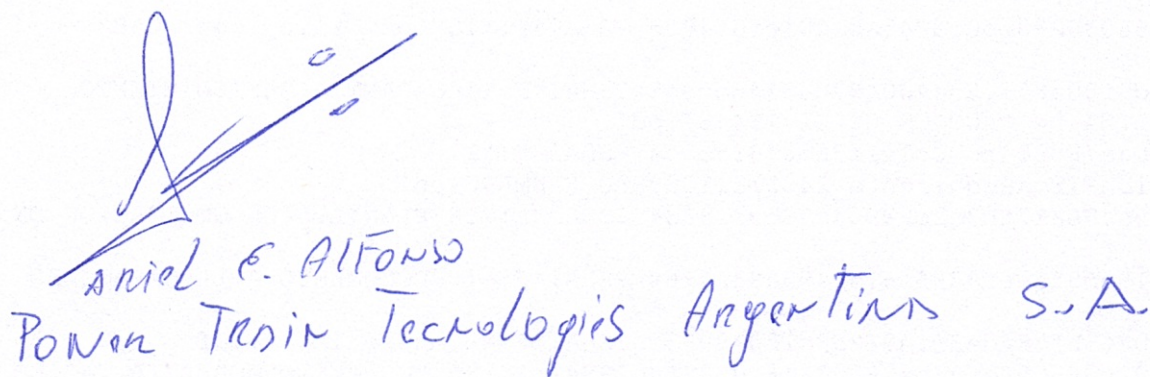 Ariel E. Alfonso
Power Train Tecnologies Argentina S.A.